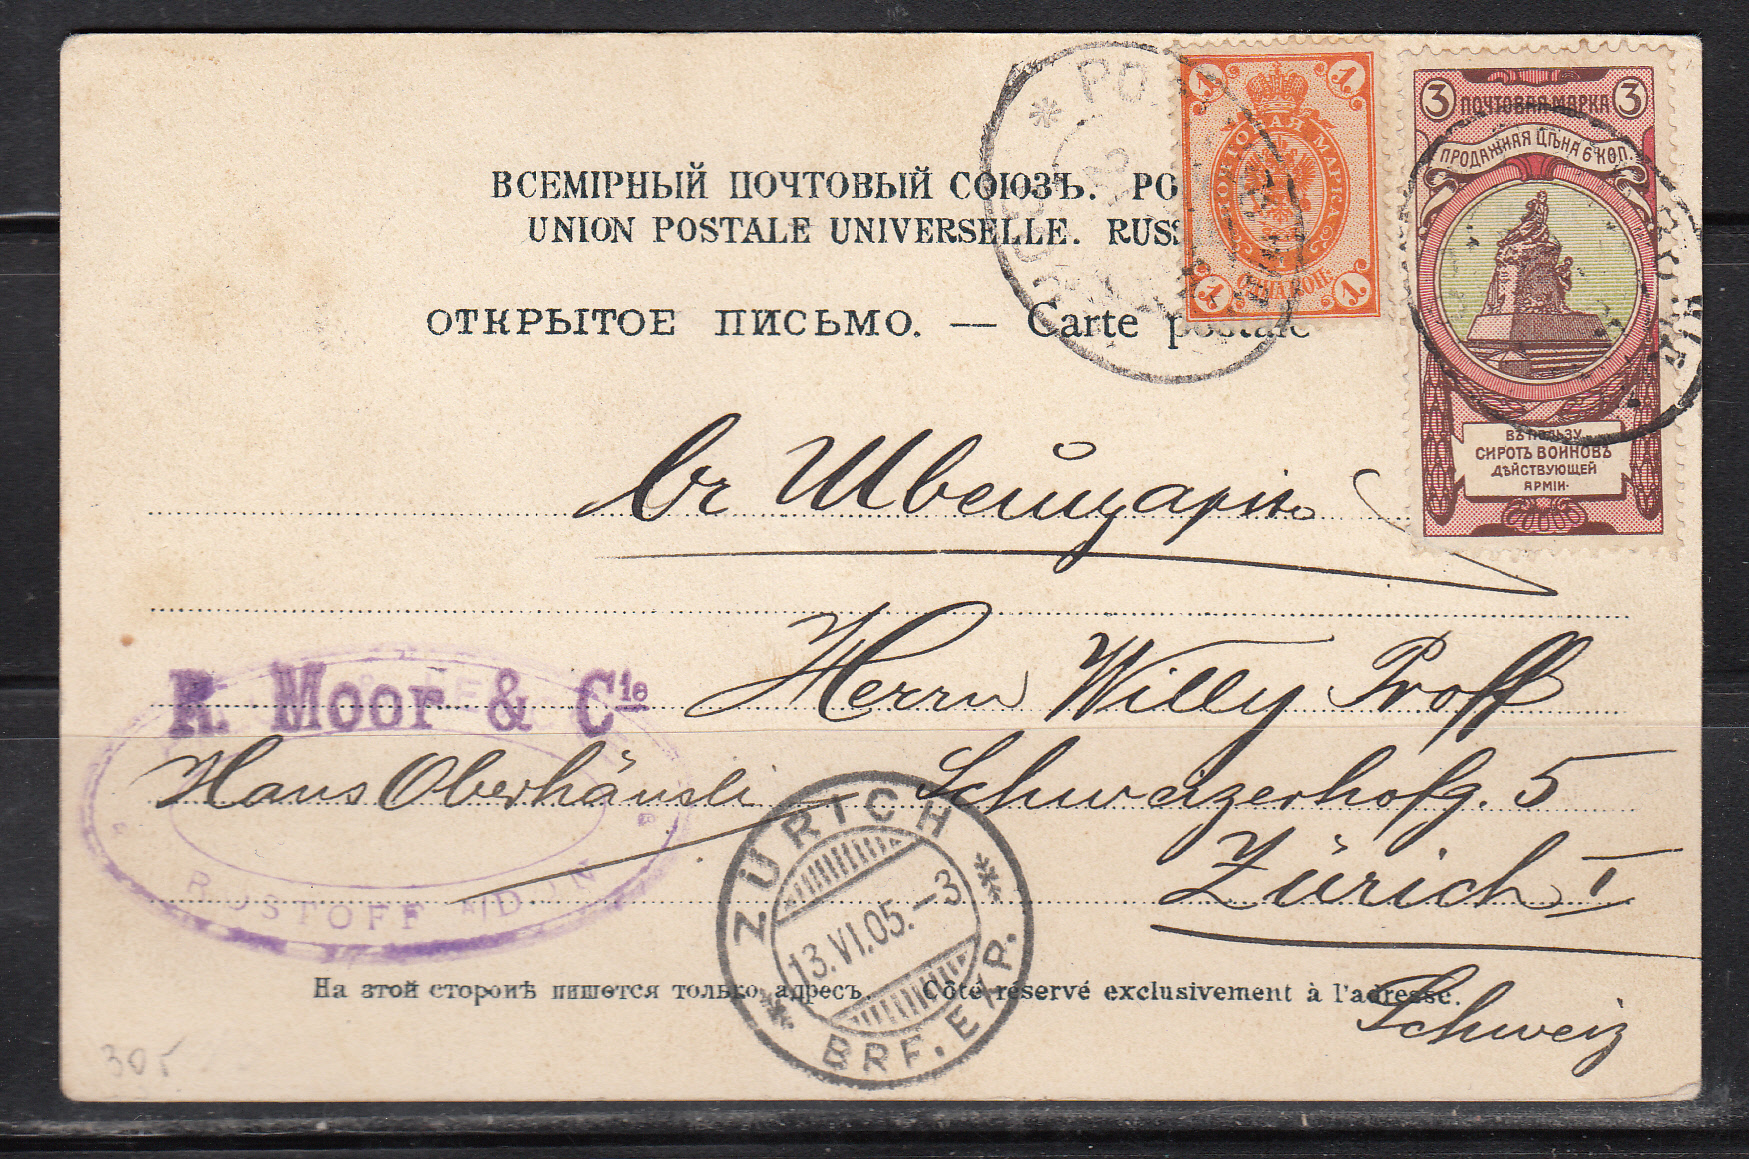 ВСЕМІРНЫЙ ПОЧТОВЫЙ СОЮЗЪ. РО
UNION POSTALE UNIVERSELLE. RUSS
ОТКРЫТОЕ ПИСЬМО. — Carte postale
1 1
ПОЧТОВАЯ МАРКА
ОДНА КОП.
1 1
3 ПОЧТОВАЯ МАРКА 3
ПРОДАЖНАЯ ЦѢНА 6 КОП.
ВЪ ПОЛЬЗУ
СИРОТЪ ВОИНОВЪ
ДѢЙСТВУЮЩЕЙ
АРМІИ.
въ Швейцарію
Herrn Willy Proff
Schweizerhofg. 5
Zürich I
Schweiz
R. Moor & Cie
Hans Oberhänsli
ROSTOFF S/DON
ZÜRICH
13.VI.05.-3
BRF. EXP.
На этой сторонѣ пишется только адресъ. Côté réservé exclusivement à l'adresse.
305